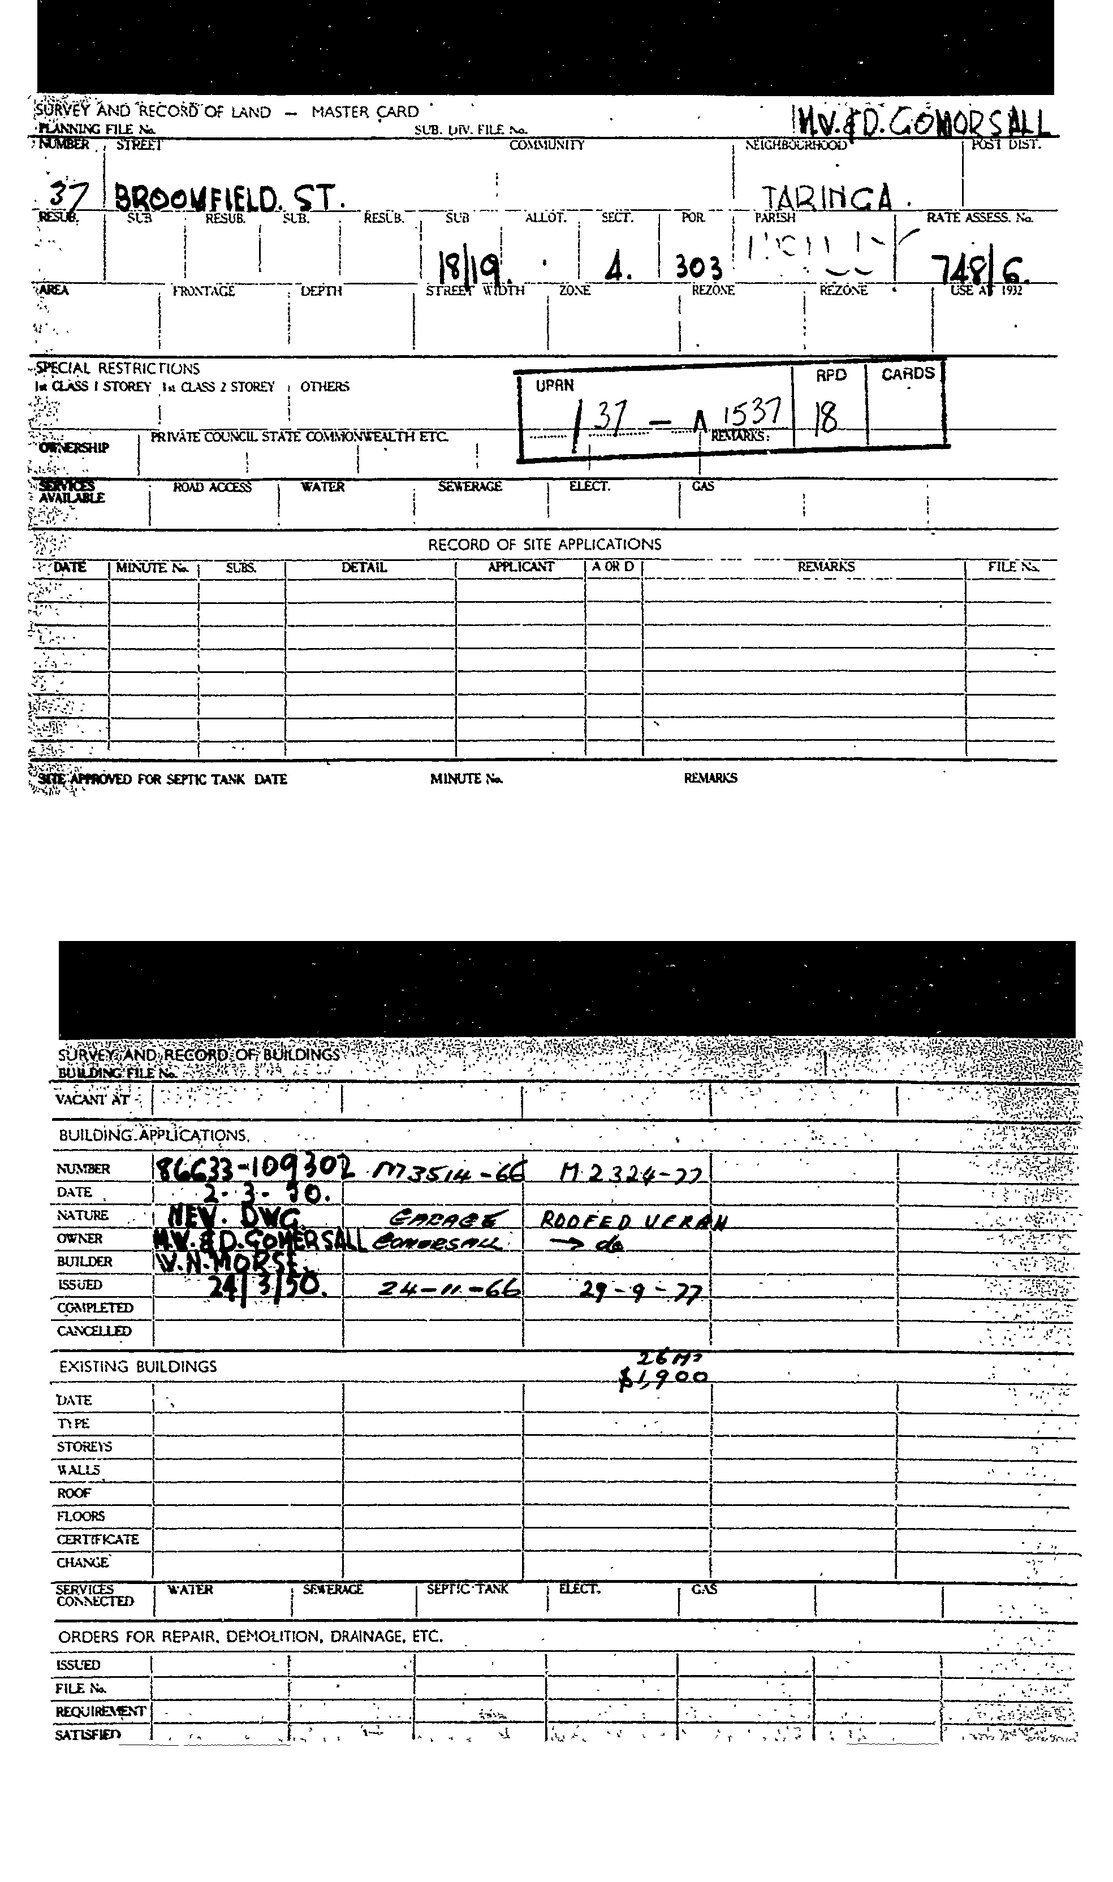 SURVEY AND RECORD OF LAND — MASTER CARD
M.V. & D. GOMORSALL
PLANNING FILE No. SUB. DIV. FILE No.
NUMBER STREET COMMUNITY NEIGHBOURHOOD POST DIST.
37 BROOMFIELD. ST. TARINGA.
RESUB. SUB RESUB. SUB. RESUB. SUB ALLOT. SECT. POR. PARISH RATE ASSESS. No.
18/19. 4. 303 748/6.
AREA FRONTAGE DEPTH STREET WIDTH ZONE REZONE REZONE USE AT 1932
SPECIAL RESTRICTIONS
1st CLASS 1 STOREY 1st CLASS 2 STOREY OTHERS
UPRN RPD CARDS
/ 37 — A 1537 18
OWNERSHIP PRIVATE COUNCIL STATE COMMONWEALTH ETC. REMARKS:
SERVICES AVAILABLE ROAD ACCESS WATER SEWERAGE ELECT. GAS
RECORD OF SITE APPLICATIONS
DATE MINUTE No. SUBS. DETAIL APPLICANT A OR D REMARKS FILE No.
SITE APPROVED FOR SEPTIC TANK DATE MINUTE No. REMARKS
SURVEY AND RECORD OF BUILDINGS
BUILDING FILE No.
VACANT AT
BUILDING APPLICATIONS.
NUMBER 86633-109302 M3514-66 M2324-77
DATE 2-3-50.
NATURE NEW. DWG GARAGE ROOFED VERAN
OWNER M.V. & D. GOMERSALL GOMERSALL → do
BUILDER W.N. MORSE.
ISSUED 24/3/50. 24-11-66 29-9-77
COMPLETED
CANCELLED
EXISTING BUILDINGS 26 M²
$1,900
DATE
TYPE
STOREYS
WALLS
ROOF
FLOORS
CERTIFICATE
CHANGE
SERVICES CONNECTED WATER SEWERAGE SEPTIC TANK ELECT. GAS
ORDERS FOR REPAIR, DEMOLITION, DRAINAGE, ETC.
ISSUED
FILE No.
REQUIREMENT
SATISFIED